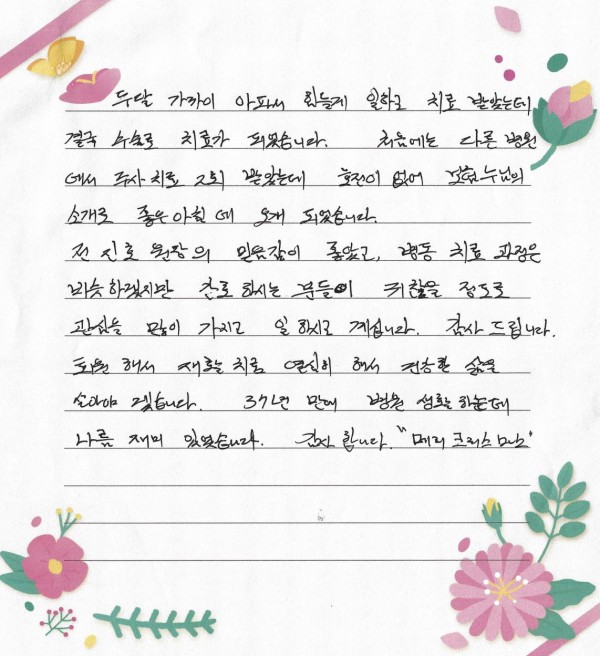 두달 가까이 아파서 힘들게 일하고 치료 받았는데
결국 수술로 치료가 되었습니다. 처음에는 다른 병원
에서 주사치료 2회 받았는데 호전이 없어 보험누님의
소개로 좋은아침 에 오게 되었습니다.
전 진호 원장의 믿음감이 좋았고, 병동 치료 과정은
비슷하겠지만 간호 하시는 분들이 귀찮을 정도로
관심을 많이 가지고 일 하시고 계십니다. 감사 드립니다.
퇴원 해서 재활 치료 열심히 해서 건강한 삶을
살아야 겠습니다. 37년 만에 병원 생활 하는데
나름 재미 있었습니다. 감사 합니다. "메리 크리스 마스"